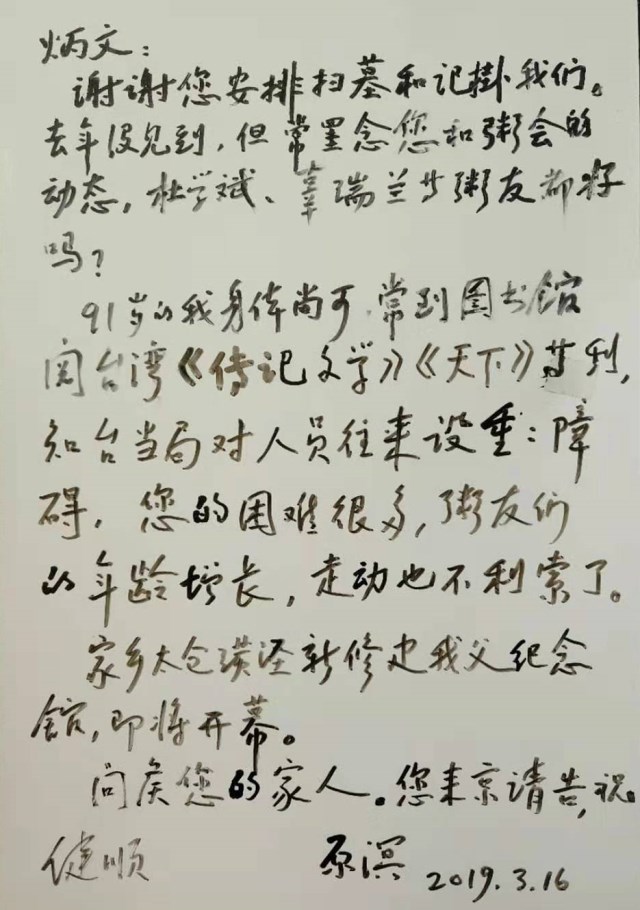 炳文：
谢谢您安排扫墓和记掛我们。
去年没见到，但常罣念您和粥会的
动态，杜学斌、辜瑞兰等粥友都好
吗？
91岁的我身体尚可，常到图书馆
阅台湾《传记文学》《天下》等刊，
知台当局对人员往来设重：障
碍，您的困难很多，粥友们
的年龄增长，走动也不利索了。
家乡太仓璜泾新修建我父纪念
馆，即将开幕。
问侯您的家人。您来京请告，祝
健顺
原溟 2019.3.16